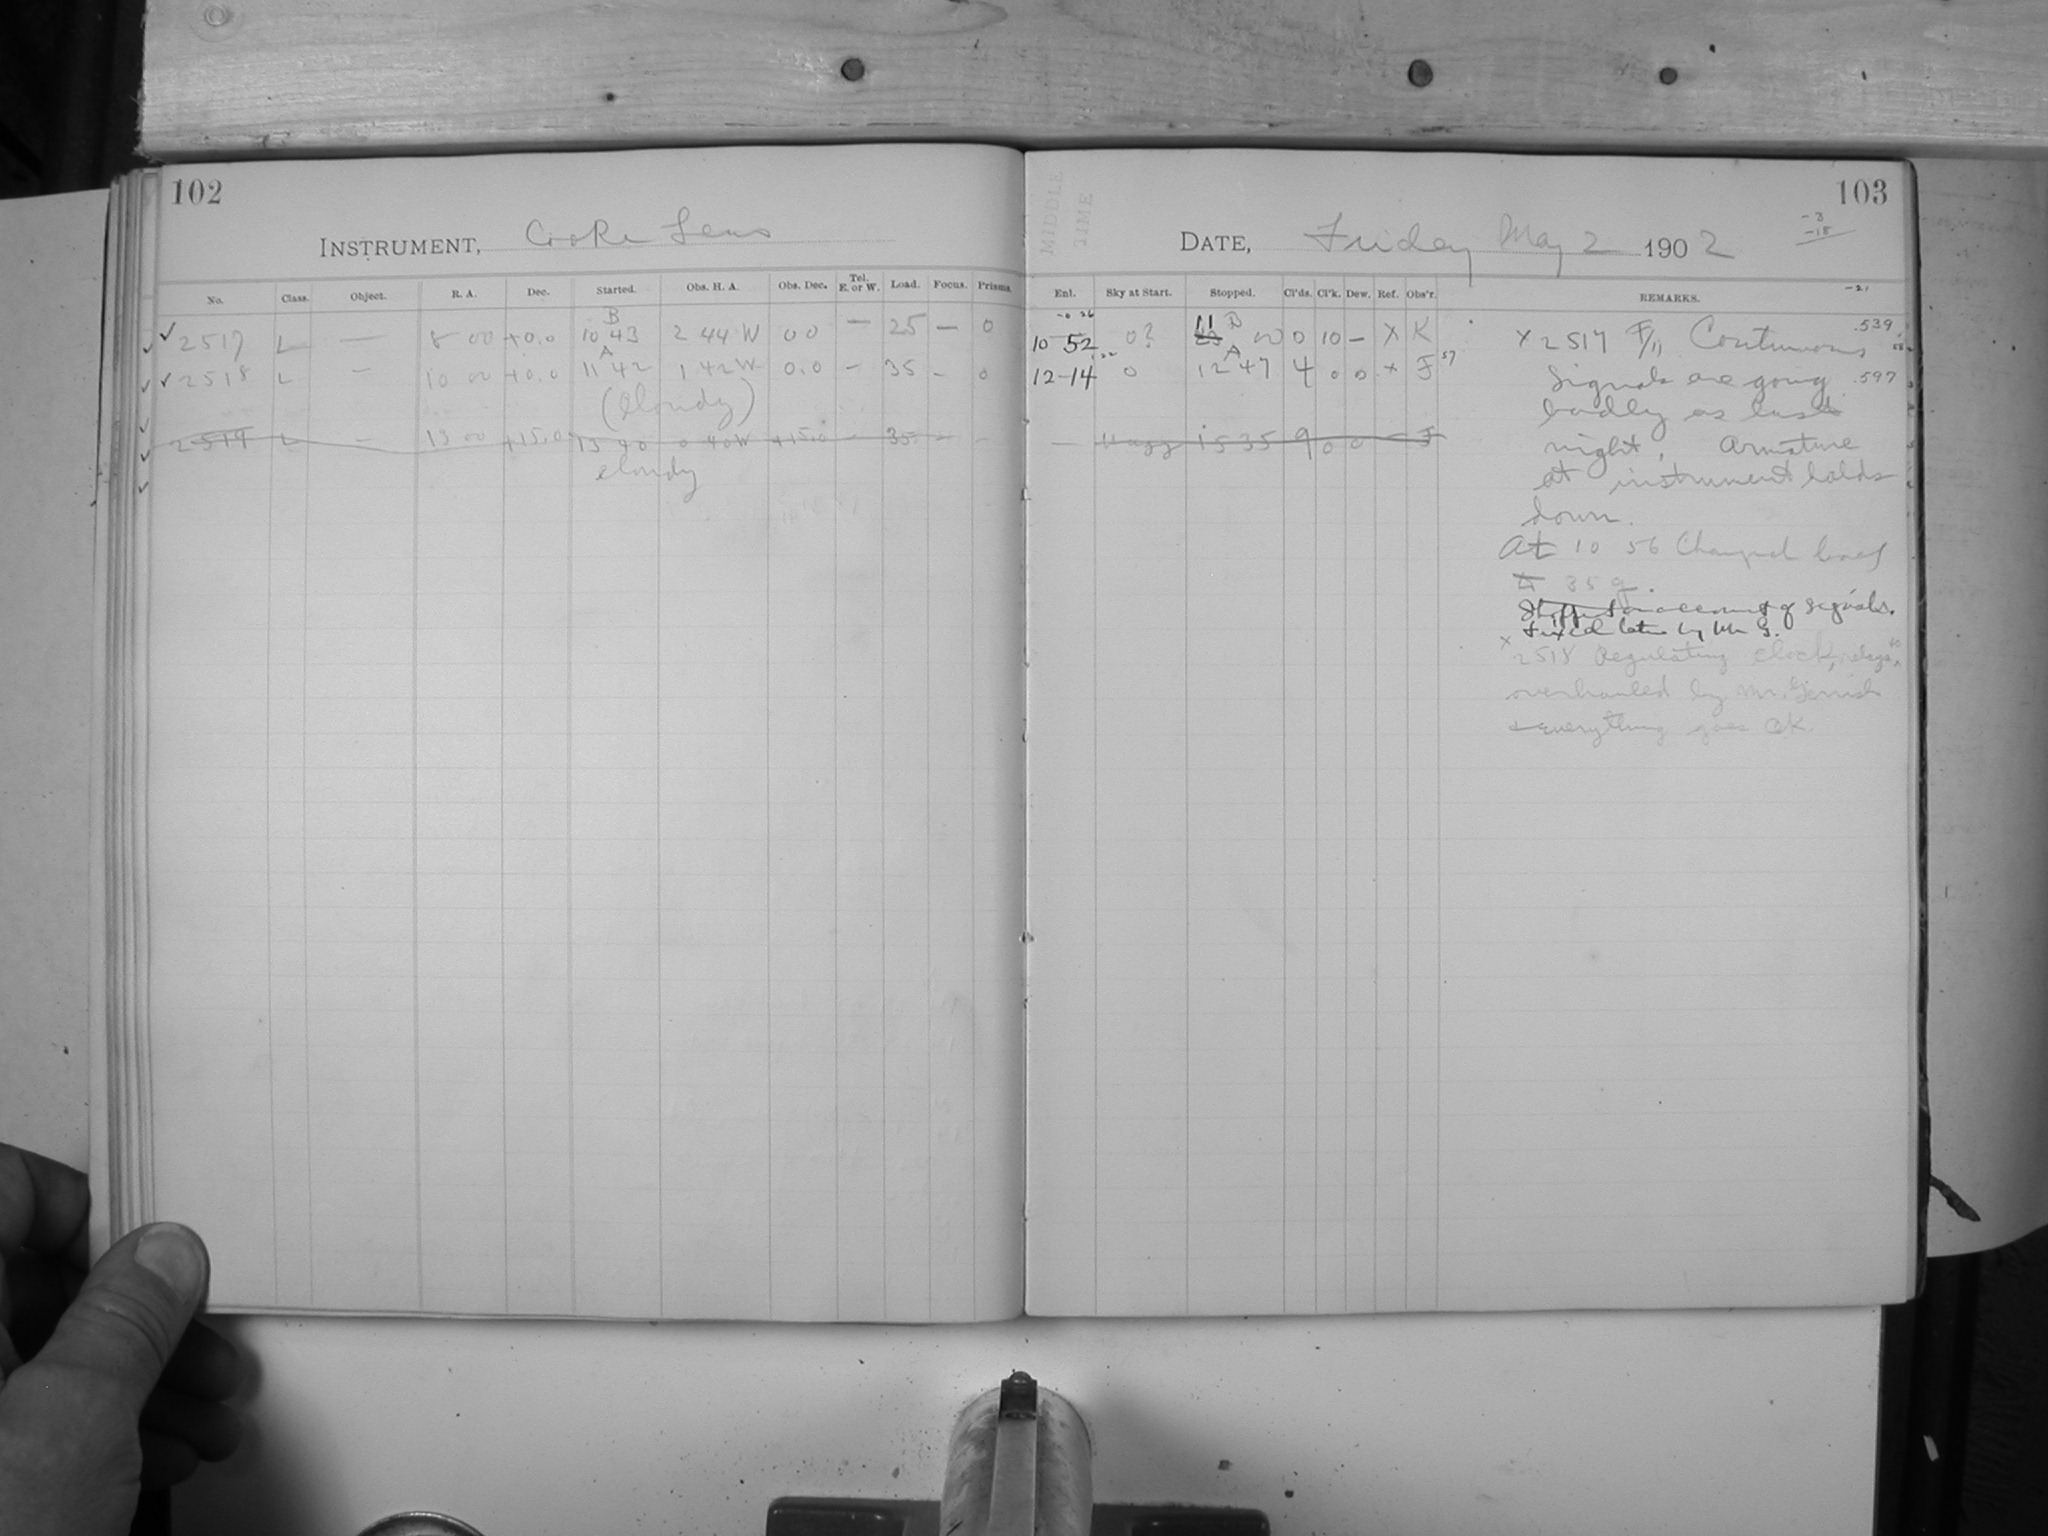 102
INSTRUMENT, Cooke Lens
No. Class. Object. R. A. Dec. Started. Obs. H. A. Obs. Dec. Tel. E. or W. Load. Focus. Prisms.
✓ 2517 L — 8 00 +0.0 B 10 43 2 44 W 0 0 — 25 — 0
✓ 2518 L — 10 00 +0.0 A 11 42 1 42 W 0.0 — 35 — 0
(Cloudy)
2519 L — 13 00 +15.0 13 40 0 40W +15.0 — 35 — —
cloudy
MIDDLE TIME
103
-3
-18
DATE, Friday May 2 1902
-21
Enl. Sky at Start. Stopped. Cl'ds. Cl'k. Dew. Ref. Obs'r. REMARKS.
10 52 0? 11 B 00 0 10 — X K
12-14 0 A 12 47 4 0 0 x F 57
— Hazy 15 35 9 0 0 — F
x 2517 F/11 Continuous .539
signals are going .597
badly as last
night. Armature
at instrument holds
down.
At 10 56 Changed load
to 35 g.
Stopped on account of signals.
Fixed later by Mr G.
x 2518 Regulating clock, relays
overhauled by Mr. Gerrish
& everything goes OK.